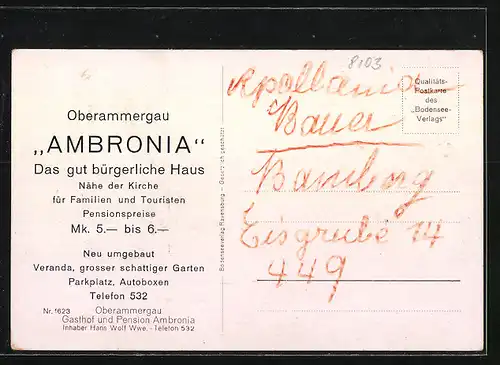 Oberammergau
„AMBRONIA“
Das gut bürgerliche Haus
Nähe der Kirche
für Familien und Touristen
Pensionspreise
Mk. 5.— bis 6.—
Neu umgebaut
Veranda, grosser schattiger Garten
Parkplatz, Autoboxen
Telefon 532
Nr. 1623
Oberammergau
Gasthof und Pension Ambronia
Inhaber Hans Wolf Wwe. - Telefon 532
Bodenseeverlag Ravensburg - Gesetzlich geschützt
8103
Qualitäts-
Postkarte
des
„Bodensee-
Verlags“
Apollania
Bauer
Bamberg
Eisgrube 14
449